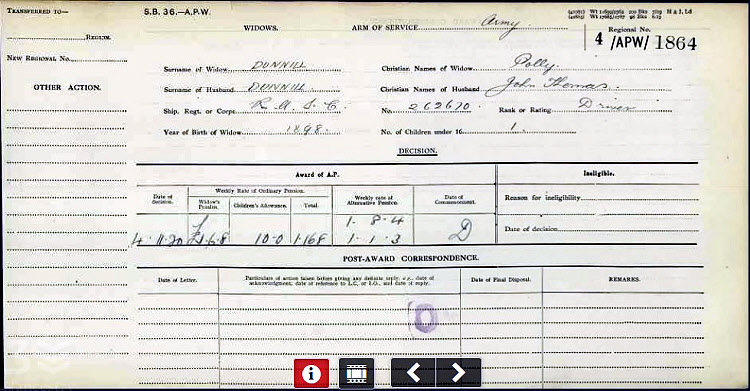 TRANSFERRED TO—
REGION.
NEW REGIONAL No.
OTHER ACTION.
S.B. 36.—A.P.W.
WIDOWS.
ARM OF SERVICE Army
Regional No.
4 /APW/ 1864
Surname of Widow DUNNILL
Christian Names of Widow Polly
Surname of Husband DUNNILL
Christian Names of Husband John Thomas.
Ship. Regt. or Corps R.A.S.C.
No. 262670.
Rank or Rating Driver
Year of Birth of Widow 1898.
No. of Children under 16 1.
DECISION.
Award of A.P.
Ineligible.
Date of decision.
Weekly Rate of Ordinary Pension.
Widow's Pension.
Children's Allowance.
Total.
Weekly rate of Alternative Pension.
Date of Commencement.
Reason for ineligibility
Date of decision
1. 8. 4
4. 11. 20 £1.6.8 10.0 1.16.8 1. 1. 3 D
POST-AWARD CORRESPONDENCE.
Date of Letter.
Particulars of action taken before giving any definite reply, e.g., date of acknowledgment, date of reference to L.C. or I.O., and date of reply.
Date of Final Disposal.
REMARKS.